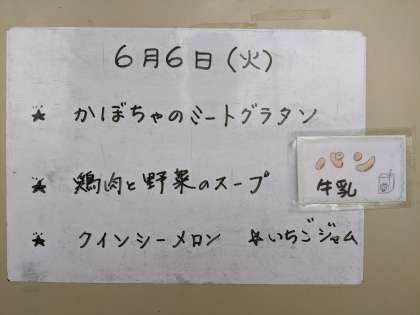 6月6日(火)
★ かぼちゃのミートグラタン
パン
牛乳
★ 鶏肉と野菜のスープ
★ クインシーメロン ☆いちごジャム